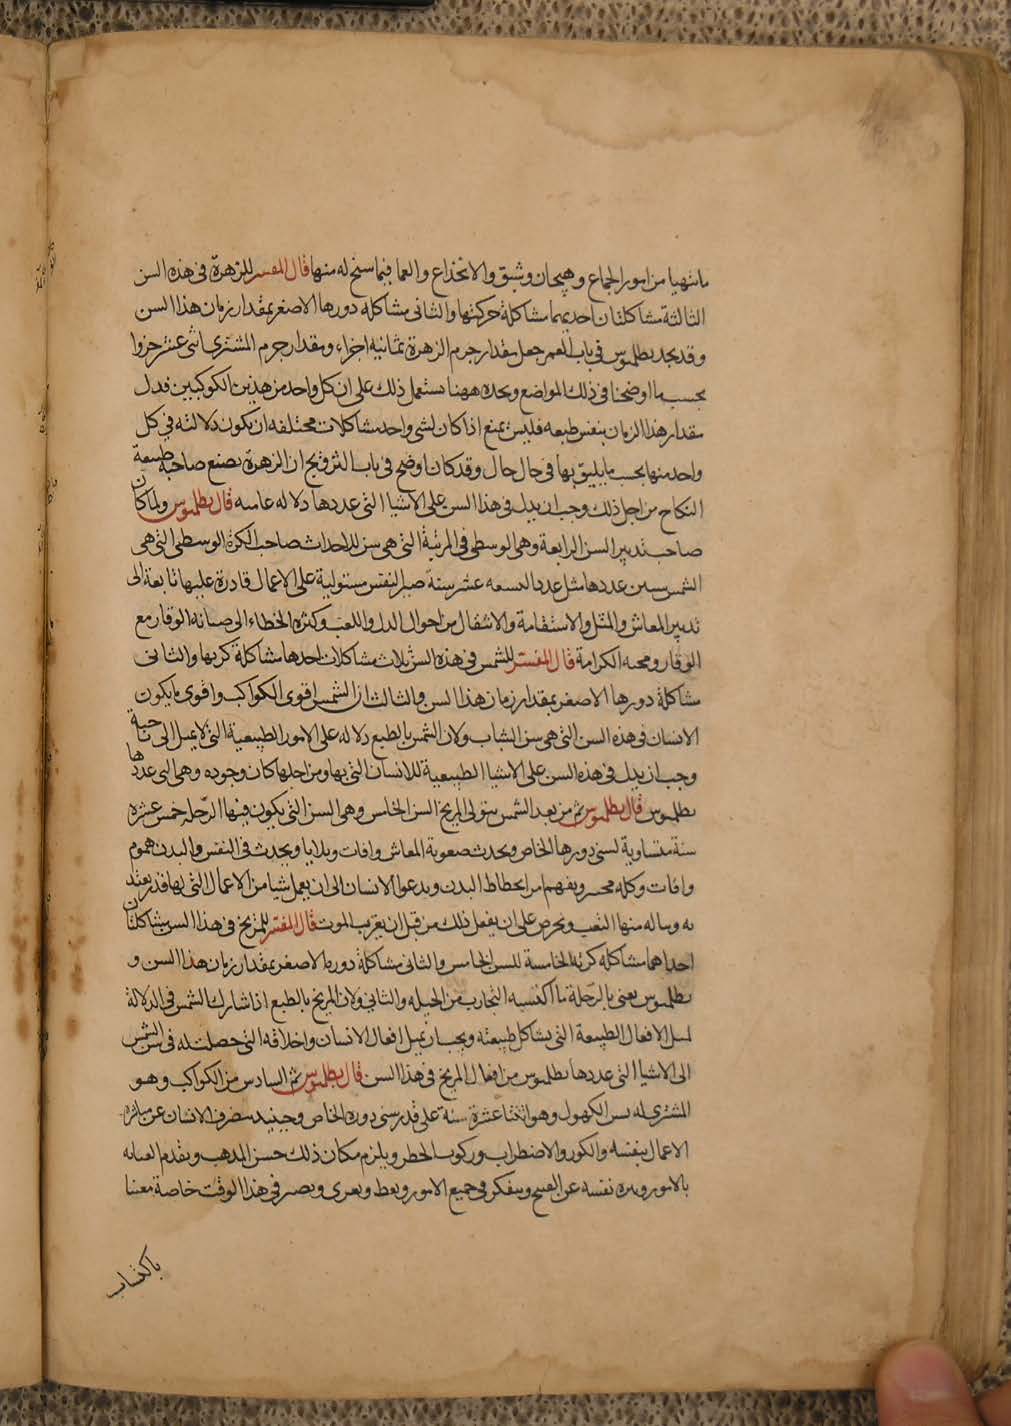 ما يتهيا من امور الجماع وهيجان وشبق والانخداع والعما فيما سنح له منها قال المفسر للزهرة فى هذه السن
الثالثة مشاكلتان احديهما مشاكلة حركتها والثانى مشاكله دورها الاصغر بمقدار زمان هذا السن
وقد نجد بطلميوس فى باب العمر جعل مقدار جرم الزهرة ثمانيه اجزاء ومقدار جرم المشترى اثنى عشر جزوا
بحسب ما اوضحنا فى ذلك المواضع ونجده ههنا يستعمل ذلك على ان كل واحد من هذين الكوكبين فدل
مقدار هذا الزمان بنفس طبعه فليس يمنع اذا كان لشى واحد مشاكلات مختلفه ان يكون دلالته فى كل
واحد منها بحسب ما يليق بها فى حال حال وقد كان اوضح فى باب التزويج ان الزهرة يصنع صاحبة طبيعة
النكاح من اجل ذلك وجب ان يدل فى هذا السن على الاشيا التى عددها دلاله عامه قال بطلميوس ولما كان
صاحب تدبير السن الرابعة وهى الوسطى فى المرتبة التى هى سن للاحداث صاحب الكرة الوسطى التى هى
الشمس سنين عددها مثل عدد التسعه عشر سنة صير النفس مستولية على الاعمال قادرة عليها تابعة الى
تدبير المعاش والمثل والاستقامة والانتقال من احوال الدل واللعب وكثرة الخطاء الى صيانه الوقار مع
الوقار ومحبه الكرامة قال المفسر للشمس فى هذه السن ثلاث مشاكلات احدها مشاكلة كريها والثانى
مشاكلة دورها الاصغر بمقدار زمان هذا السن والثالث ان الشمس اقوى الكواكب واقوى ما يكون
الانسان فى هذه السن التى هى سن الشباب ولان الشمس بالطبع دلاله على الامور الطبيعية التى لا يميل الى ناحية
وجب ان يدل فى هذه السن على الاشيا الطبيعية للانسان التى بها ومن اجلها كان وجوده وهى التى عددها
بطلميوس قال بطلميوس ثم من بعد الشمس يتولى المريخ السن الخامس وهى السن التى يكون فيها الرحلة خمس عشرة
سنة متساوية لسنى دورها الخاص ويحدث صعوبة المعاش وافات وبلايا ويحدث فى النفس والبدن هموم
وافات وكله ويفهم امر انحطاط البدن ويدعوا الانسان الى ان يعمل شيا من الاعمال التى لها قدر يعتد
به ويناله منها التعب ويحرص على ان يفعل ذلك من قبل ان يقرب الموت قال المفسر للمريخ فى هذا السن مشاكلتان
احداهما مشاكله كرته الخامسة للسن الخامس والثانى مشاكلة دوره الاصغر بمقدار زمان هذا السن و
بطلميوس يعنى بالرحلة ما اكتسبه التجارب من الحيله والثانى ولان المريخ بالطبع اذا شارك الشمس فى الدلالة
الافعال الطبيعة التى يشاكل طبيعته ويجب ان يميل افعال الانسان واخلاقه التى حصلت له فى سن الشمس
الى الاشيا التى عددها بطلميوس من افعال المريخ فى هذا السن قال بطلميوس ثم السادس من الكواكب وهو
المشترى له سن الكهول وهو اثنتا عشرة سنة على قدر سنى دوره الخاص وحينيد ينصرف الانسان عن مباشرة
الاعمال بنفسه والكور والاضطراب وركوب الخطر ويلزم مكان ذلك حسن المدهب وتقدم العنايه
بالامور وينزه نفسه عن القبيح ويتفكر فى جميع الامور ويعظ ويعزى ويصير فى هذا الوقت خاصة معتنيا
باكتساب